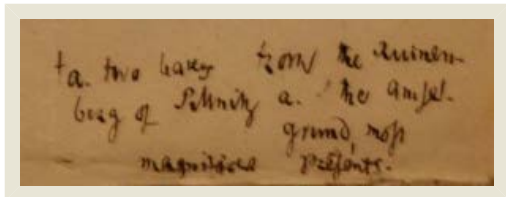 ta. two bases from the Ruinen-
berg of Pillnitz a. the Amsel-
grund, most
magnificent presents.